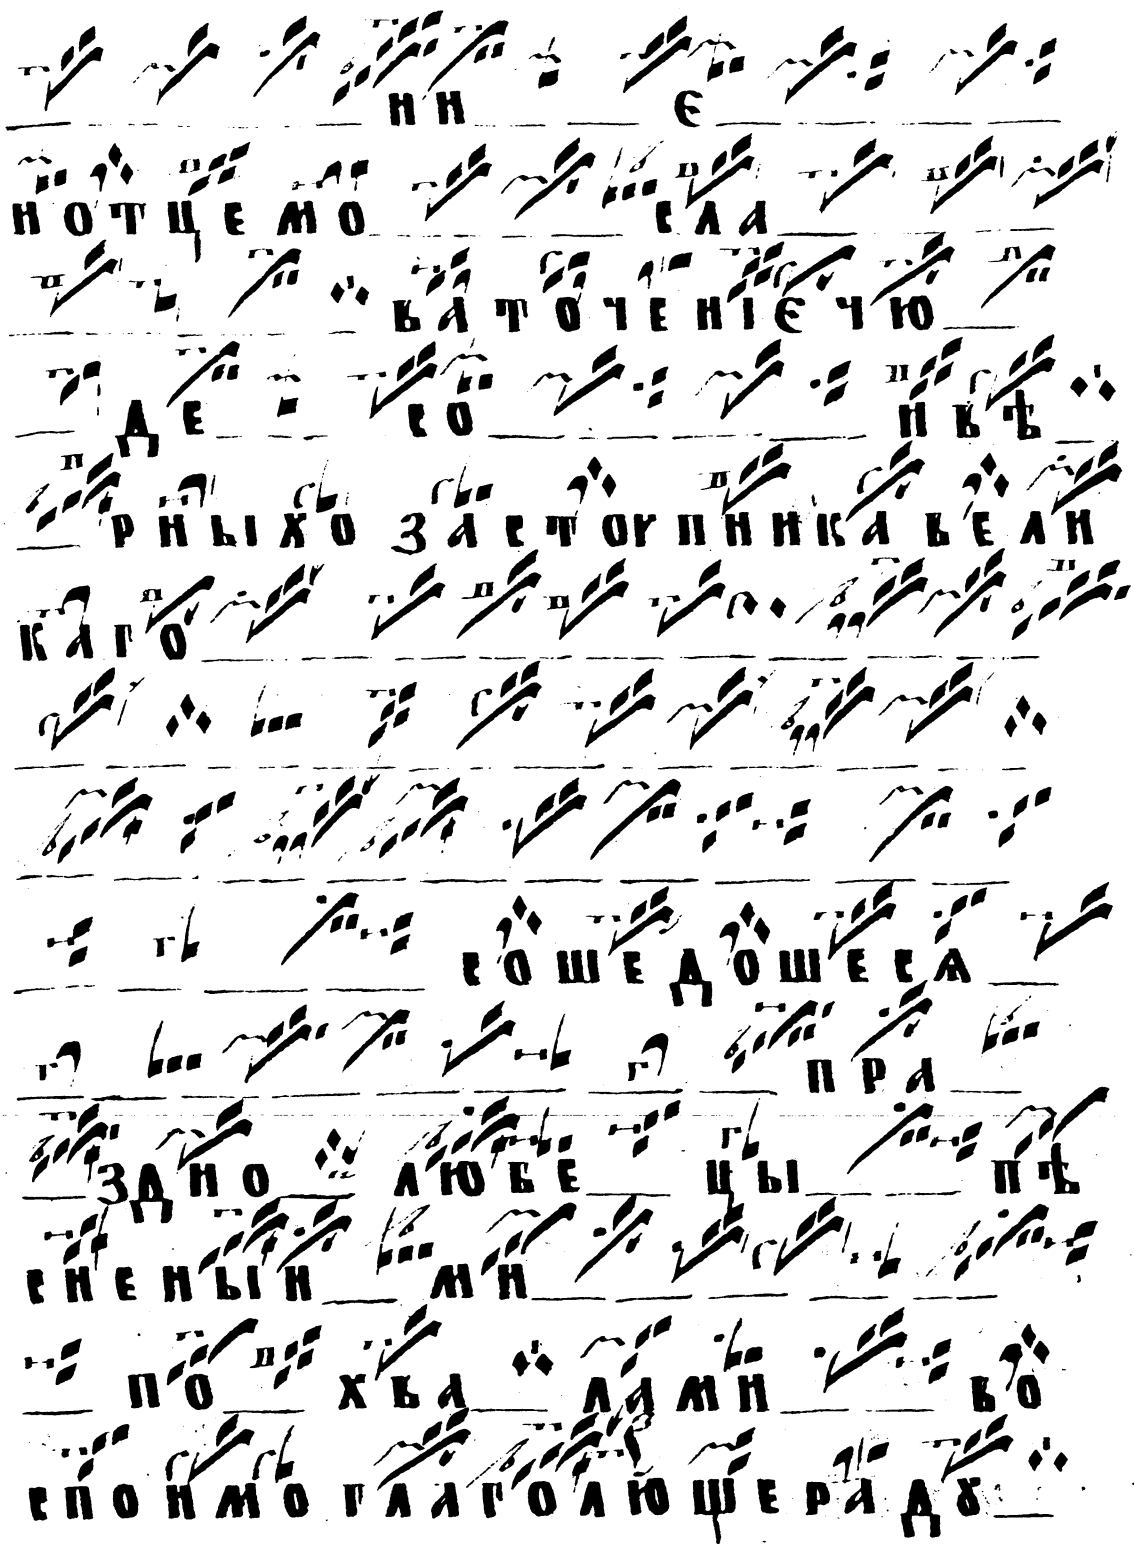 ни є
нотцемо сла
ваточенієчю
де со нвѣ
рныхо застогпника вели
каго
сошедошеся
пра
здно любе цы пѣ
сненыи ми
по хва лами во
споимо глаголющерадꙋ